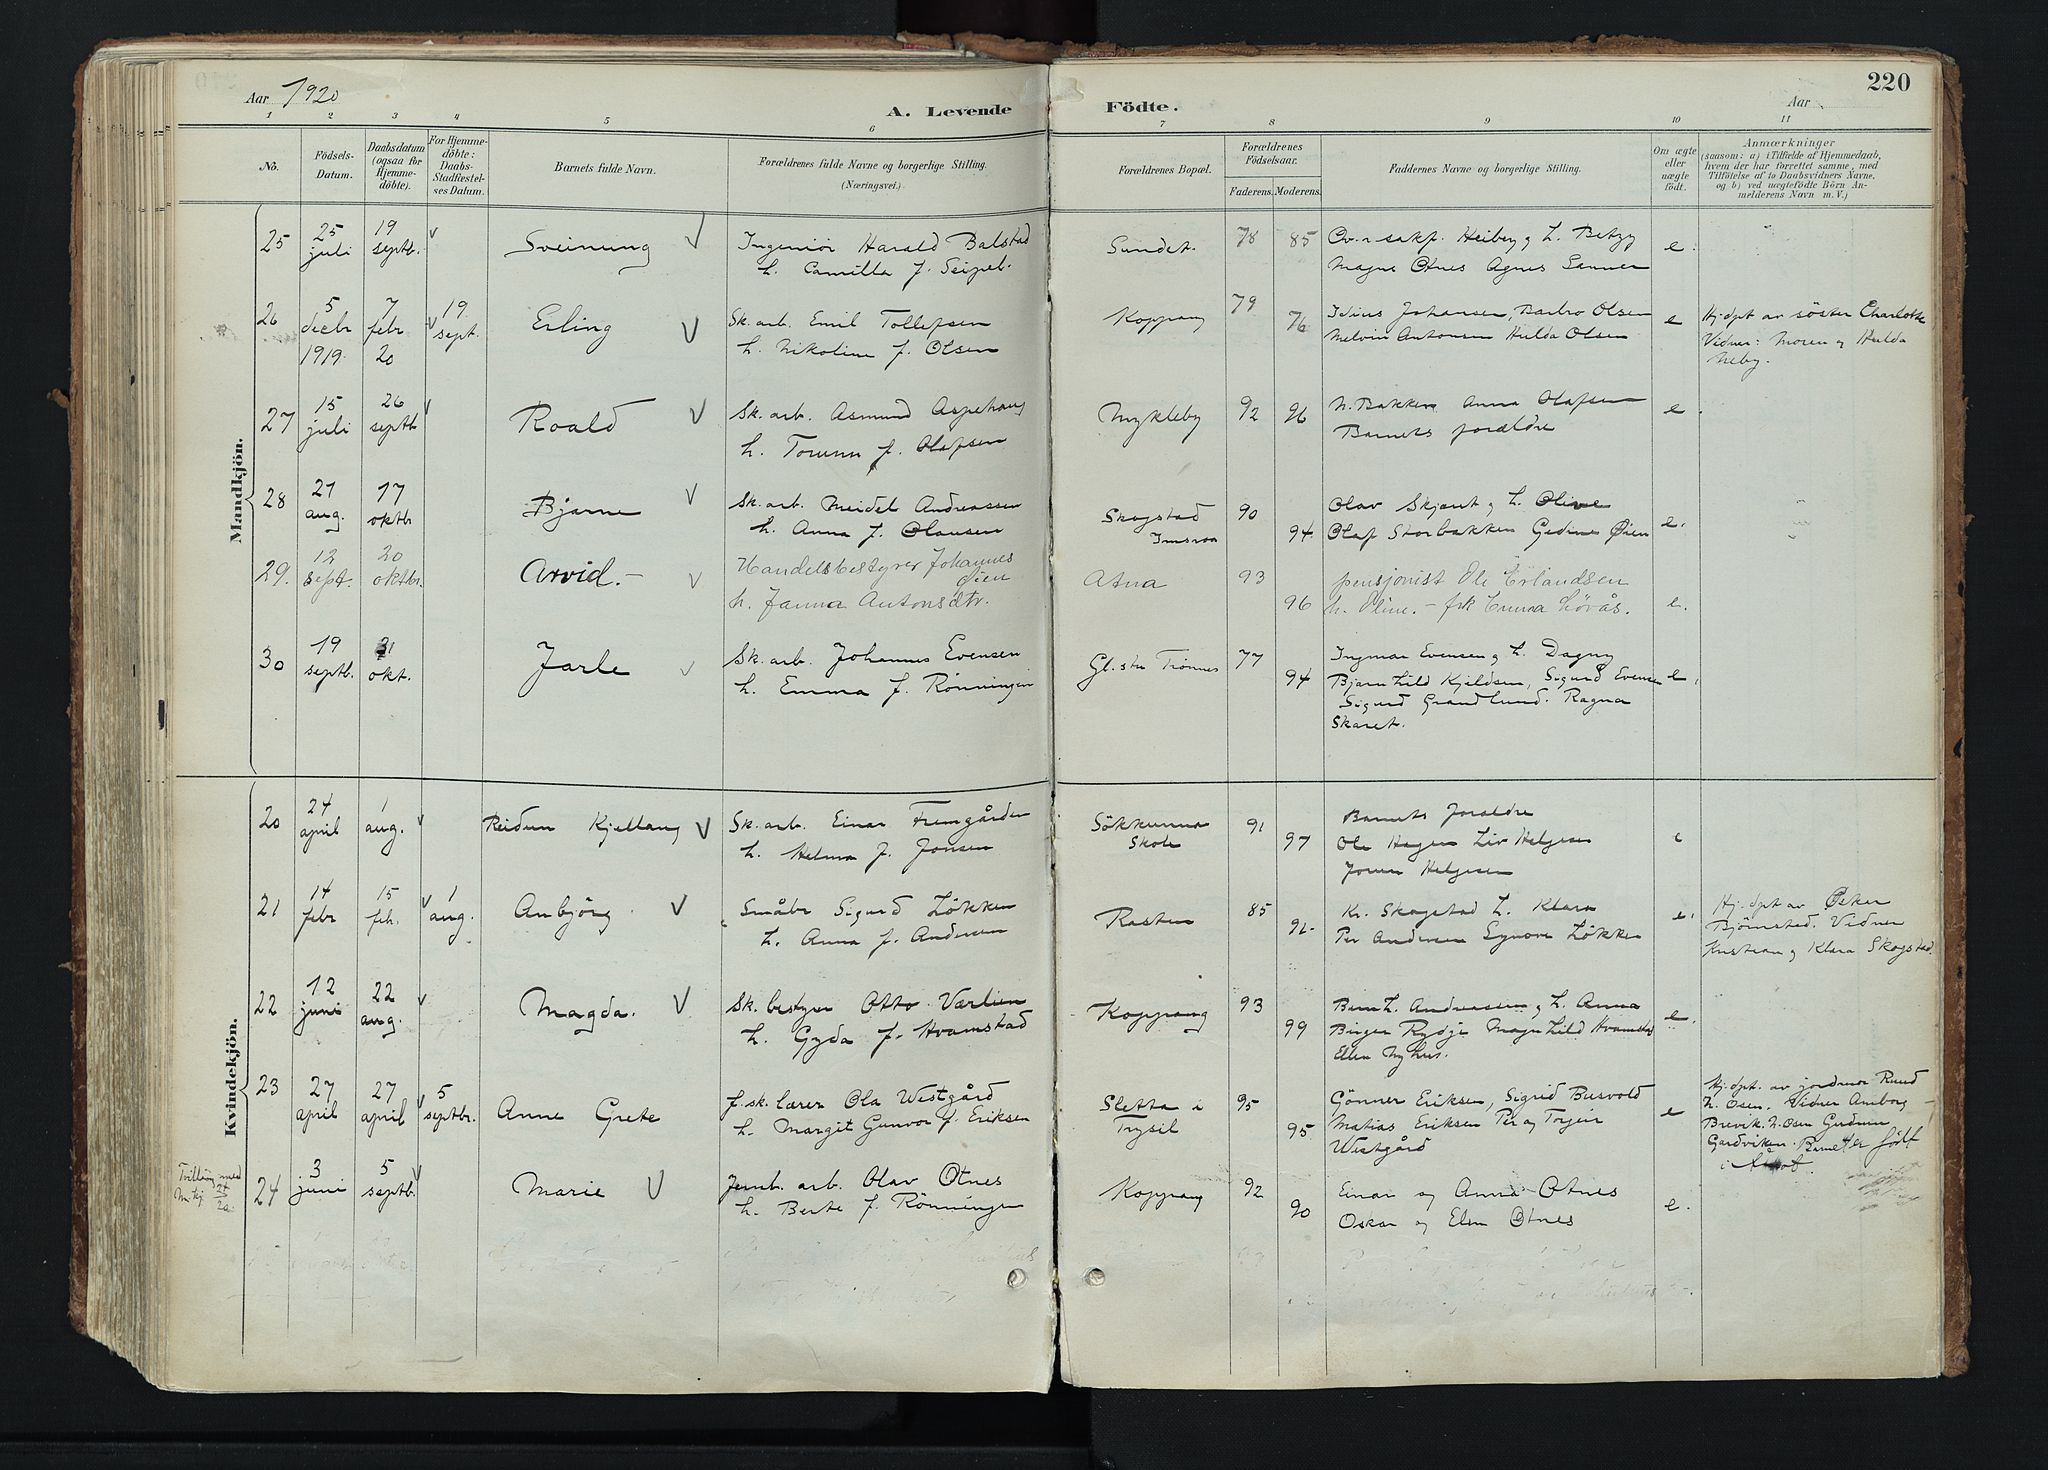 220
Aar 1920
A. Levende Födte.
Aar
1 2 3 4 5 6 7 8 9 10 11
No.
Födsels-Datum.
Daabsdatum (ogsaa for Hjemmedöbte).
For Hjemmedöbte: Daabs-Stadfæstelses Datum.
Barnets fulde Navn.
Forældrenes fulde Navne og borgerlige Stilling. (Næringsvei.)
Forældrenes Bopæl.
Forældrenes Födselsaar.
Faderens. Moderens.
Faddernes Navne og borgerlige Stilling.
Om ægte eller uægte födt.
Anmærkninger
(saasom: a) i Tilfælde af Hjemmedaab, hvem der har forrettet samme, med Tilföielse af to Daabsvidners Navne, og b) ved uægtefödte Börn Anmelderens Navn m. V.)
Mandkjön.
25
25 juli
19 septb.
Sveinung
Ingeniör Harald Balstad
h. Camilla f. Seipel.
Sundet.
78 85
Heiberg og h. Betzy
Magne Otnes Agnes Sanner
e.
26
5 decbr 1919.
7 febr 20
19. sept.
Erling
Sk. arb. Emil Tollefsen
h. Nikoline f. Olsen
Koppang
79 76
Johansen, Barbro Olsen
Melvin Antonsen Hulda Olsen
e
Hj.döpt av söster Charlotte
Vidner: moren og Hulda
Neby.
27
15 juli
26 septb
Roald
Sk. arb. Asmund Aspehaug
h. Torunn f. Olafsen
Mykleby
92 96
N. Bakken Anna Olafsen
Barnets forældre
e.
28
21 aug.
17 oktb
Bjarne
Sk. arb. Meidel Andreassen
h. Anna f. Olausen
Skogstad
Imsroa
90 94
Olav Skjæret og h. Olive
Olaf Storbakken Gedine Øien
e.
29.
12 sept.
20 oktbr.
Arvid.
Handelsbestyrer Johannes
Øien
h. Janna Antonsdtr.
Atna
93 96
pensjonist Ole Erlandsen
h. Oline. - frk Emma Lövås.
e.
30
19 septb.
31 okt.
Jarle
Sk. arb. Johannes Evensen
h. Emma f. Rønningen
Gl. stu Trönnes
77 94
Ingmar Evensen og h. Dagny
Bjarnhild Kjeldsen, Sigurd Evensen
Sigurd Grandlund. Ragna
Skaret.
e.
Kvindekjön.
20
24 april
1 aug.
Reidun Kjellaug
Sk. arb. Einar Fremgården
h. Helma f. Jonsen
Sökkunna
Skole
91 97
Barnets forældre
Ole Hagen Liv Helgesen
Jorun Helgesen
e
21
14 febr
15 feb.
1 aug.
Anbjörg
Småbr Sigurd Løkken
h. Anna f. Andersen
Rasten
85 91.
Kr. Skogstad h. Klara
Per Andersen Synove Løkken
e.
Hj.döpt av Oskar
Björnstad. Vidner
Kristian og Klara Skogstad.
22
12 juni
22 aug.
Magda.
Sk. bestyrer Otto Værlien
h. Gyda f. Hvamstad
Koppang
93 99
Bernh. Andreassen og h. Anna
Birger Magnhild Hvamstad
Ellen Nyhus.
e.
23
27 april
27 april
5 septbr.
Anne Grete
f. sk. lærer Ola Westgård
h. Margit Gunvor f. Eriksen
Sletta i
Trysil
95 95
Gönner Eriksen, Sigrid Busvold
Matias Eriksen Per og Torgeir
Westgård
e
Hj.döpt. av jordmor Ruud
N. Osen. Vidner Amborg
Brevik. N. Osen Gudrun
Gardviken. Barnet er födt
i Åmot.
Tvilling med
Mkj. 24/20.
24
3 juni
5 septb.
Marie
Jernb. arb. Olav Otnes
h. Berte f. Rønningen
Koppang
92 90
Einar og Anna Otnes
Oskar og Elen Otnes
e.